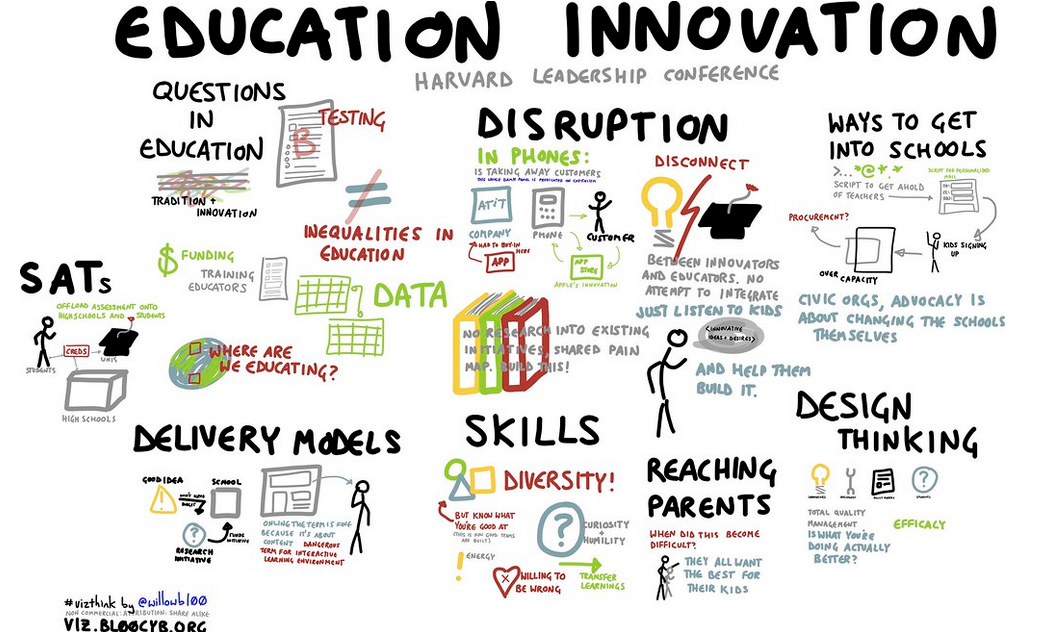 EDUCATION INNOVATION
HARVARD LEADERSHIP CONFERENCE
QUESTIONS
IN
EDUCATION
TESTING
B
TRADITION +
INNOVATION
INEQUALITIES IN
EDUCATION
$ FUNDING
TRAINING
EDUCATORS
DATA
WHERE ARE
WE EDUCATING?
SATs
OFFLOAD ASSESSMENT ONTO
HIGHSCHOOLS AND STUDENTS
CREDS
STUDENTS
UNIS
HIGH SCHOOLS
DISRUPTION
IN PHONES:
IS TAKING AWAY CUSTOMERS
AT;T
COMPANY
PHONE
CUSTOMER
HAD TO BUY-IN
HERE
APP
APP
STORE
APPLE'S INNOVATION
DISCONNECT
BETWEEN INNOVATORS
AND EDUCATORS. NO
ATTEMPT TO INTEGRATE
JUST LISTEN TO KIDS
(INNOVATIVE
IDEAS + DESIRES)
AND HELP THEM
BUILD IT.
NO RESEARCH INTO EXISTING
INITIATIVES, SHARED PAIN
MAP. BUILD THIS!
WAYS TO GET
INTO SCHOOLS
>...*@+*
SCRIPT TO GET AHOLD
OF TEACHERS
SCRIPT FOR PERSONALIZED
MAIL
PROCUREMENT?
KIDS SIGNING
UP
OVER CAPACITY
CIVIC ORGS, ADVOCACY IS
ABOUT CHANGING THE SCHOOLS
THEMSELVES
DELIVERY MODELS
GOOD IDEA
SCHOOL
RESEARCH
INITIATIVE
FUNDS
INITIATIVE
ONLINE THE TERM IS FINE
BECAUSE IT'S ABOUT
CONTENT DANGEROUS
TERM FOR INTERACTIVE
LEARNING ENVIRONMENT
SKILLS
DIVERSITY!
BUT KNOW WHAT
YOU'RE GOOD AT
(THIS IS HOW GOOD TEAMS
ARE BUILT)
?
CURIOSITY
+
HUMILITY
! ENERGY
X
WILLING TO
BE WRONG
TRANSFER
LEARNINGS
REACHING
PARENTS
WHEN DID THIS BECOME
DIFFICULT?
THEY ALL WANT
THE BEST FOR
THEIR KIDS
DESIGN
THINKING
TOTAL QUALITY
MANAGEMENT
IS WHAT YOU'RE
DOING ACTUALLY
BETTER?
EFFICACY
#vizthink by @willowbl00
NON COMMERCIAL: ATTRIBUTION: SHARE ALIKE
VIZ.BL00CYB.ORG